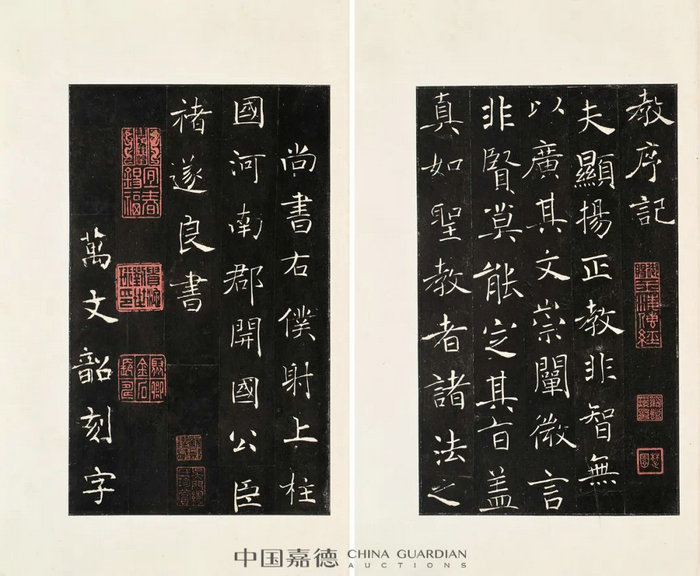 教序記
夫顯揚正教非智無
以廣其文崇闡微言
非賢莫能定其旨盖
真如聖教者諸法之
尚書右僕射上柱
國河南郡開國公臣
褚遂良書
萬文韶刻字
中国嘉德 CHINA GUARDIAN
AUCTIONS